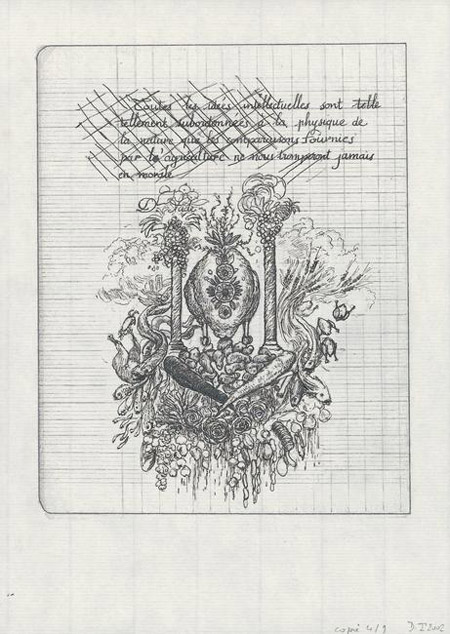 Toutes les idées intellectuelles sont telle
tellement subordonnées à la physique de
la nature que les comparaisons fournies
par l'agriculture ne nous tromperont jamais
en morale
4/9